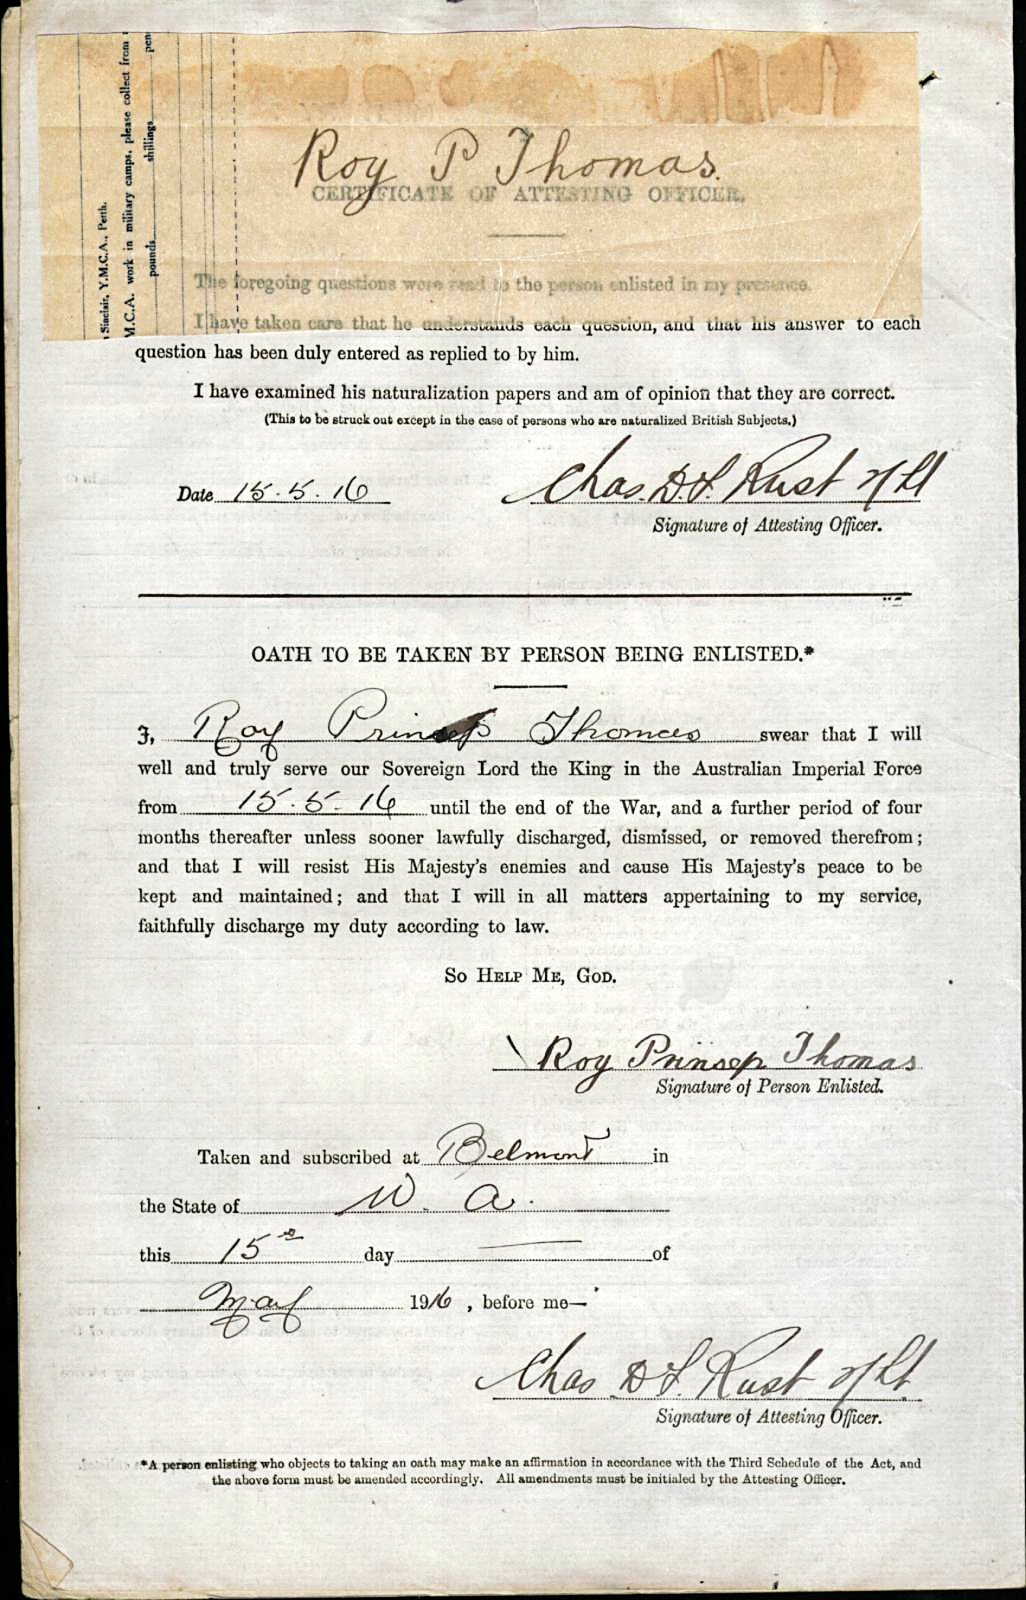 Sinclair, Y.M.C.A., Perth.
M.C.A. work in military camps, please collect from
pounds shillings pen
Roy P Thomas.
CERTIFICATE OF ATTESTING OFFICER.
The foregoing questions were read to the person enlisted in my presence.
I have taken care that he understands each question, and that his answer to each
question has been duly entered as replied to by him.
I have examined his naturalization papers and am of opinion that they are correct.
(This to be struck out except in the case of persons who are naturalized British Subjects.)
Date 15.5.16 Chas. D.S. Rust 2/Lt
Signature of Attesting Officer.
OATH TO BE TAKEN BY PERSON BEING ENLISTED.*
I, Roy Prinsep Thomas swear that I will
well and truly serve our Sovereign Lord the King in the Australian Imperial Force
from 15.5.16 until the end of the War, and a further period of four
months thereafter unless sooner lawfully discharged, dismissed, or removed therefrom;
and that I will resist His Majesty's enemies and cause His Majesty's peace to be
kept and maintained; and that I will in all matters appertaining to my service,
faithfully discharge my duty according to law.
SO HELP ME, GOD.
Roy Prinsep Thomas
Signature of Person Enlisted.
Taken and subscribed at Belmont in
the State of W. A.
this 15th day of
May 1916, before me—
Chas D S. Rust 2/Lt.
Signature of Attesting Officer.
*A person enlisting who objects to taking an oath may make an affirmation in accordance with the Third Schedule of the Act, and
the above form must be amended accordingly. All amendments must be initialed by the Attesting Officer.